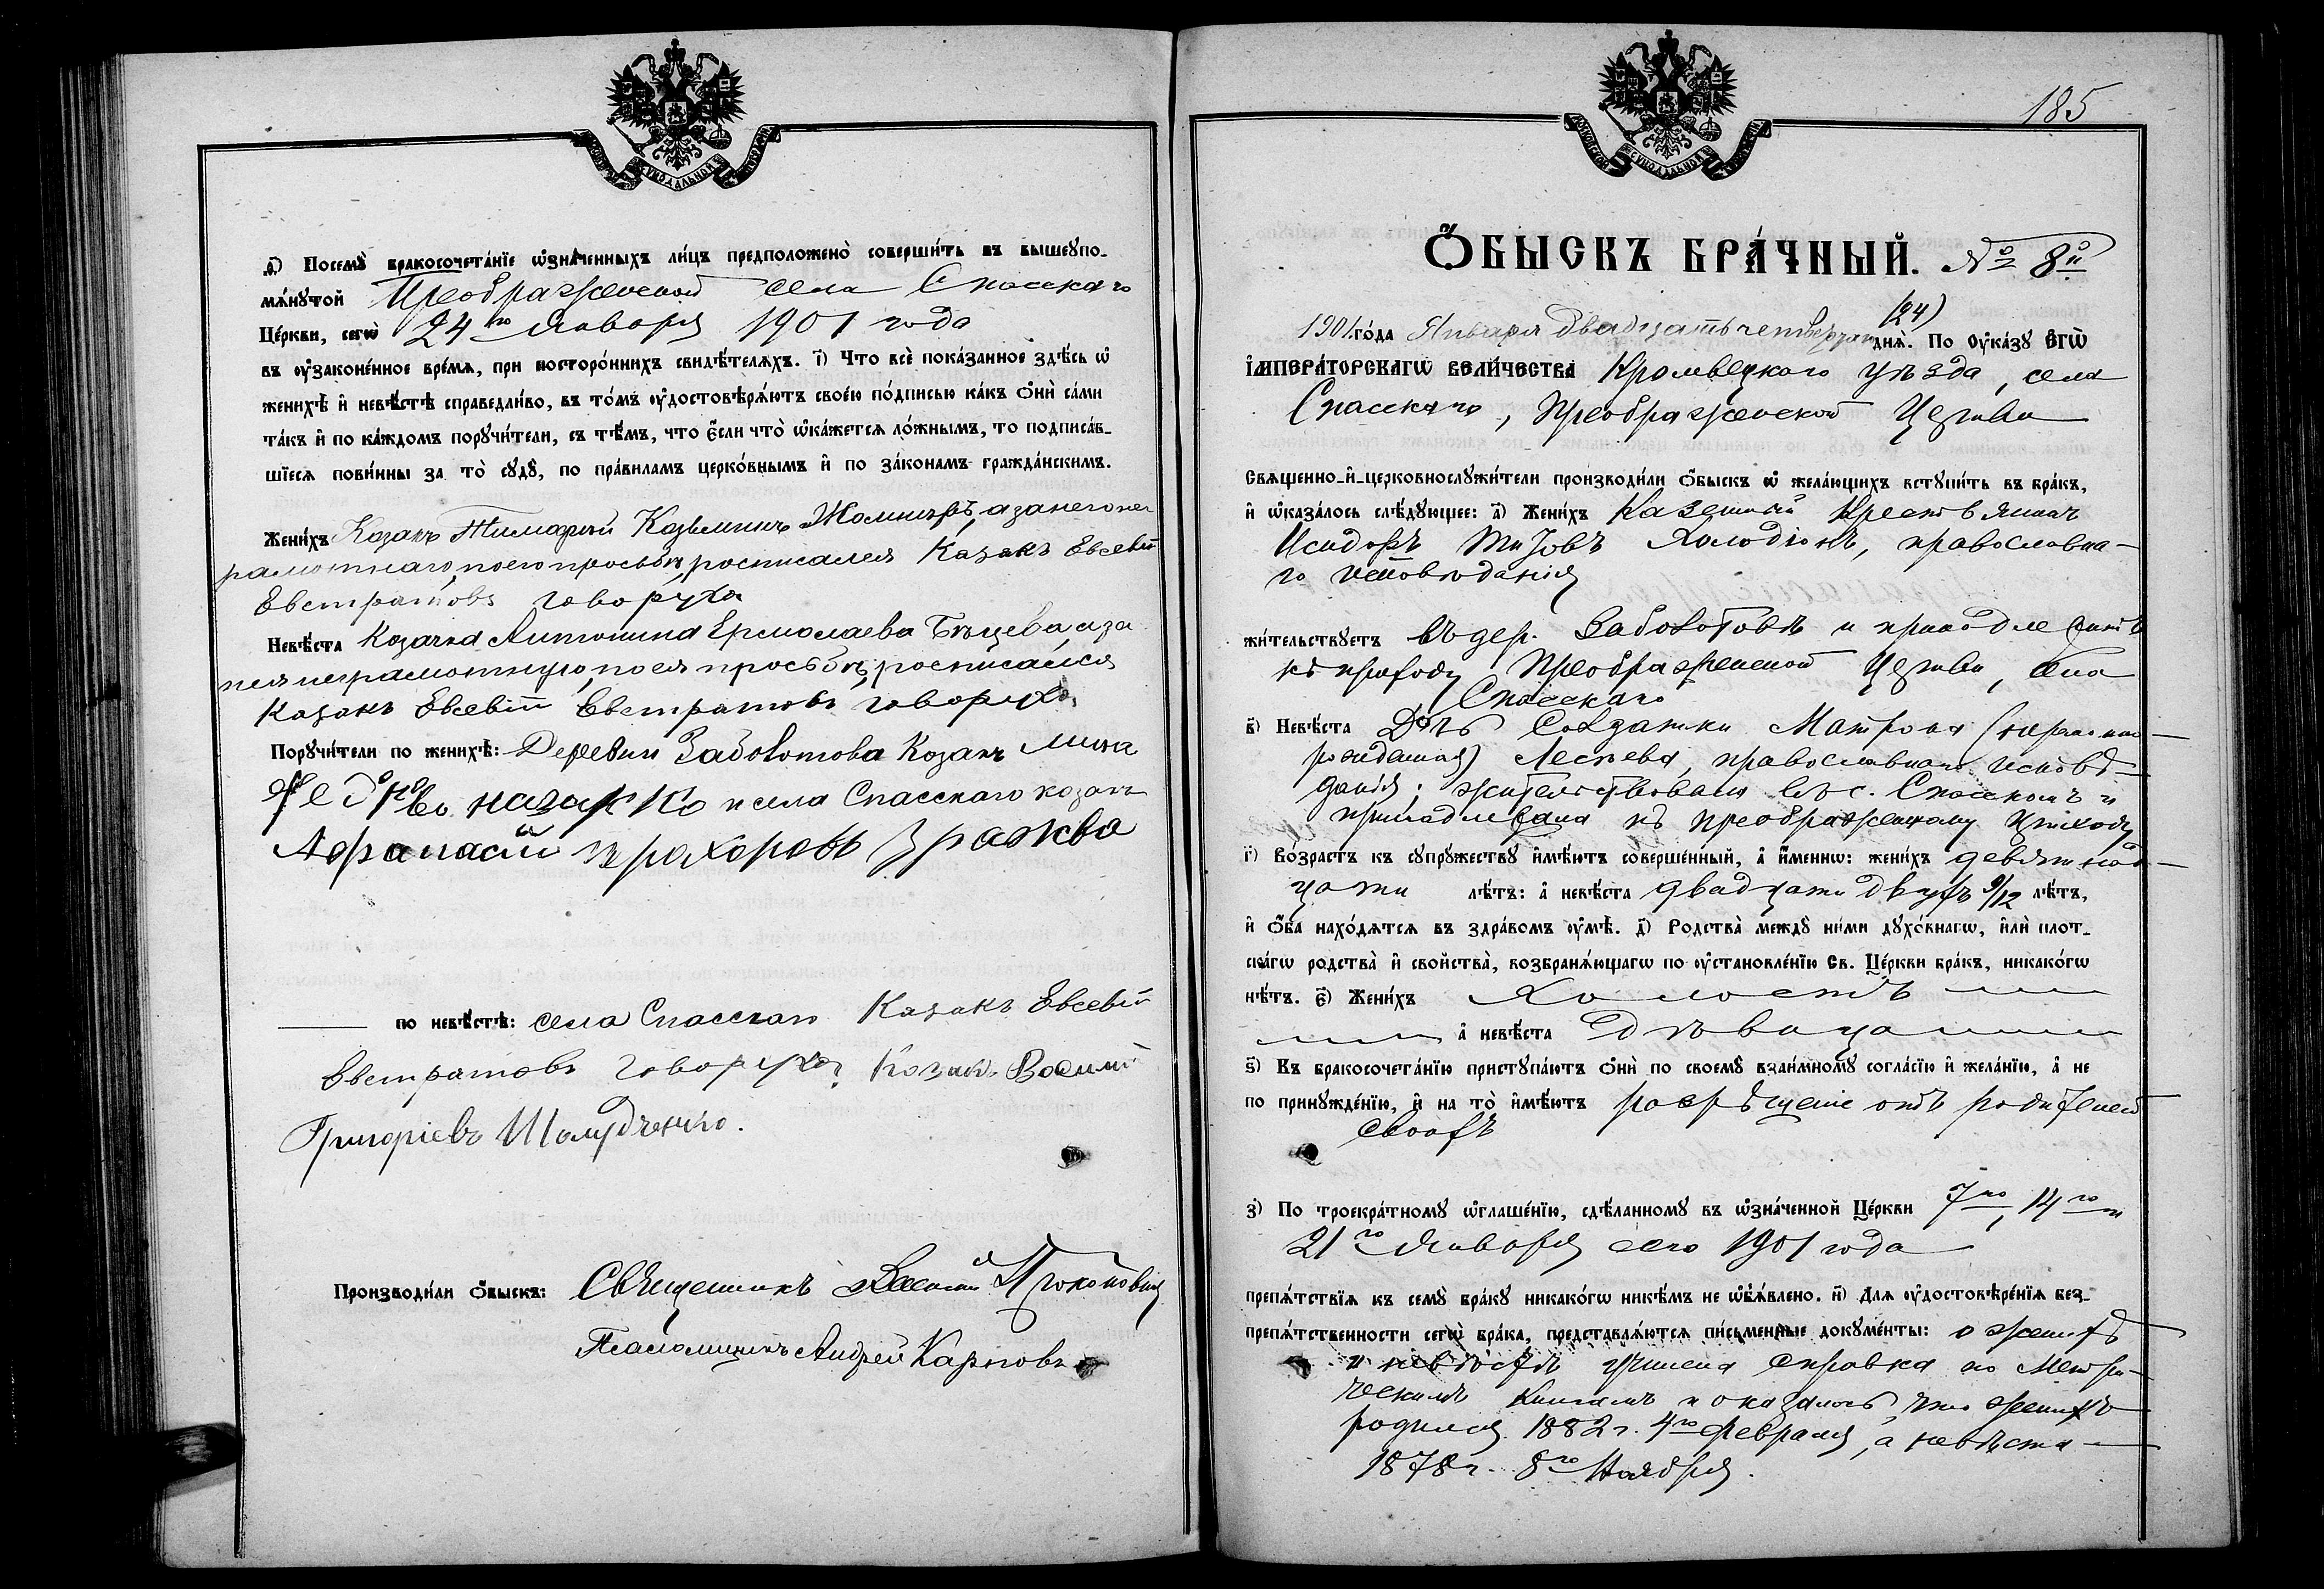 МОСКОВСКОЙ СѴНОДАЛЬНОЙ ТѴПОГРАФІИ
ѳ҃) Посемꙋ̀ бракосочета́нїе ѡ҆зна́ченныхъ ли́цъ предположено̀ соверши́ть въ вышеꙋпо-
мѧ́нꙋтой Преображенской села Спасскаго
Це́ркви, сегѡ̀ 24го Января 1901 года
въ ᲂу҆законе́нное вре́мѧ, при посторо́ннихъ свидѣ́телѧхъ. і҃) Что всѐ пока́занное здѣ́сь ѡ҆
женихѣ̀ и҆ невѣ́стѣ справедли́во, въ то́мъ ᲂу҆достовѣрѧ́ютъ своє́ю по́дписью ка́къ ѻ҆нѝ са́ми
та́къ и҆ по ка́ждомъ порꙋчи́тели, съ тѣ́мъ, что є҆́сли что̀ ѡ҆ка́жетсѧ ло́жнымъ, то подписа́в-
шїесѧ пови́нны за то̀ сꙋдꙋ̀, по пра́виламъ церко́внымъ и҆ по зако́намъ гражда́нскимъ.
Жени́хъ Козакъ Тимофей Козьминъ а за него не
грамотнаго, по его прозьбѣ, росписался Казакъ Евсевій
Евстратовъ Говоруха
Невѣ́ста Козачка Антонина Ермолаева а за
нея неграмотную, по ея прозьбѣ, росписался
Казакъ Евсевій Евстратовъ Говоруха.
Порꙋчи́тели по женихѣ̀: Деревни Заболотова Козакъ Мина
и села Спасскаго козакъ
Афанасій Прохоровъ Зражева
по невѣ́стѣ: села Спасскаго Казакъ Евсевій
Евстратовъ Говоруха, Козакъ Василій
Григоріевъ Шолудченко.
Производи́ли ѻ҆́быскъ: Священникъ Василій Прокоповичъ
Псаломщикъ Андрей Карповъ
185
МОСКОВСКОЙ СѴНОДАЛЬНОЙ ТѴПОГРАФІИ
Ѻ҆́БЫСКЪ БРА́ЧНЫЙ. № 8й
(24)
1901 го́да Января двадцать четвертаго днѧ̀. По ᲂу҆ка́зꙋ Є҆ГѠ̀
І҆МПЕРА́ТОРСКАГѠ ВЕЛИ́ЧЕСТВА Кролевецкаго уѣзда, села
Спасскаго, Преображенской Церкви
Свѧще́нно-и҆-церковнослꙋжи́тели производи́ли ѻ҆́быскъ ѡ҆ жела́ющихъ встꙋпи́ть въ бра́къ,
и҆ ѡ҆каза́лось слѣ́дꙋющее: а҃) Жени́хъ Казенный Крестьянинъ
Исидоръ Титовъ Холодюкъ, православна-
го исповѣданія
жи́тельствꙋетъ въ дер. Заболотовѣ и принадлежитъ
къ приходу Преображенской Церкви, села
Спасскаго
в҃) Невѣ́ста Дочь Солдатки Матроны
рожденная) православнаго исповѣ-
данія; жительствовала въ с. Спасскомъ и
принадлежала къ Преображенскому приходу
г҃) Во́зрастъ къ сꙋпрꙋ́жествꙋ и҆мѣ́ютъ соверше́нный, а҆ и҆́меннѡ: жени́хъ девятнад-
цати лѣ́тъ: а҆ невѣ́ста двадцати двухъ 9/12 лѣ́тъ,
и҆ ѻ҆́ба нахо́дѧтсѧ въ здра́вомъ ᲂу҆мѣ̀. д҃) Родства̀ междꙋ̀ ни́ми дꙋхо́внагѡ, и҆лѝ плот-
ска́гѡ родства̀ и҆ свойства̀, возбранѧ́ющагѡ по ᲂу҆становле́нїю Св. Це́ркви бра́къ, никако́гѡ
нѣ́тъ. є҃) Жени́хъ Холостъ
а҆ невѣ́ста Дѣвица
ѕ҃) Къ бракосочета́нїю пристꙋпа́ютъ ѻ҆нѝ по своемꙋ̀ взаи́мномꙋ согла́сїю и҆ жела́нїю, а҆ не
по принꙋжде́нїю, и҆ на то̀ и҆мѣ́ютъ розрѣщеніе отъ родителей
своихъ
з҃) По троекра́тномꙋ ѡ҆глаше́нїю, сдѣ́ланномꙋ въ ѡ҆зна́ченной Це́ркви 7го, 14го и
21го Января сего 1901 года
препѧ́тствїѧ къ семꙋ̀ бра́кꙋ никако́гѡ никѣ́мъ не ѡ҆бъѧ́влено. и҃) Длѧ ᲂу҆достовѣре́нїѧ без-
препѧ́тственности сегѡ̀ бра́ка, представлѧ́ютсѧ пи́сьменные докꙋме́нты: о женихѣ
и невѣстѣ учинена справка по Метри-
ческимъ Книгамъ и оказалось, что женихъ
родился 1882 г. 4го Февраля, а невѣста
1878 г. 8го Ноября.